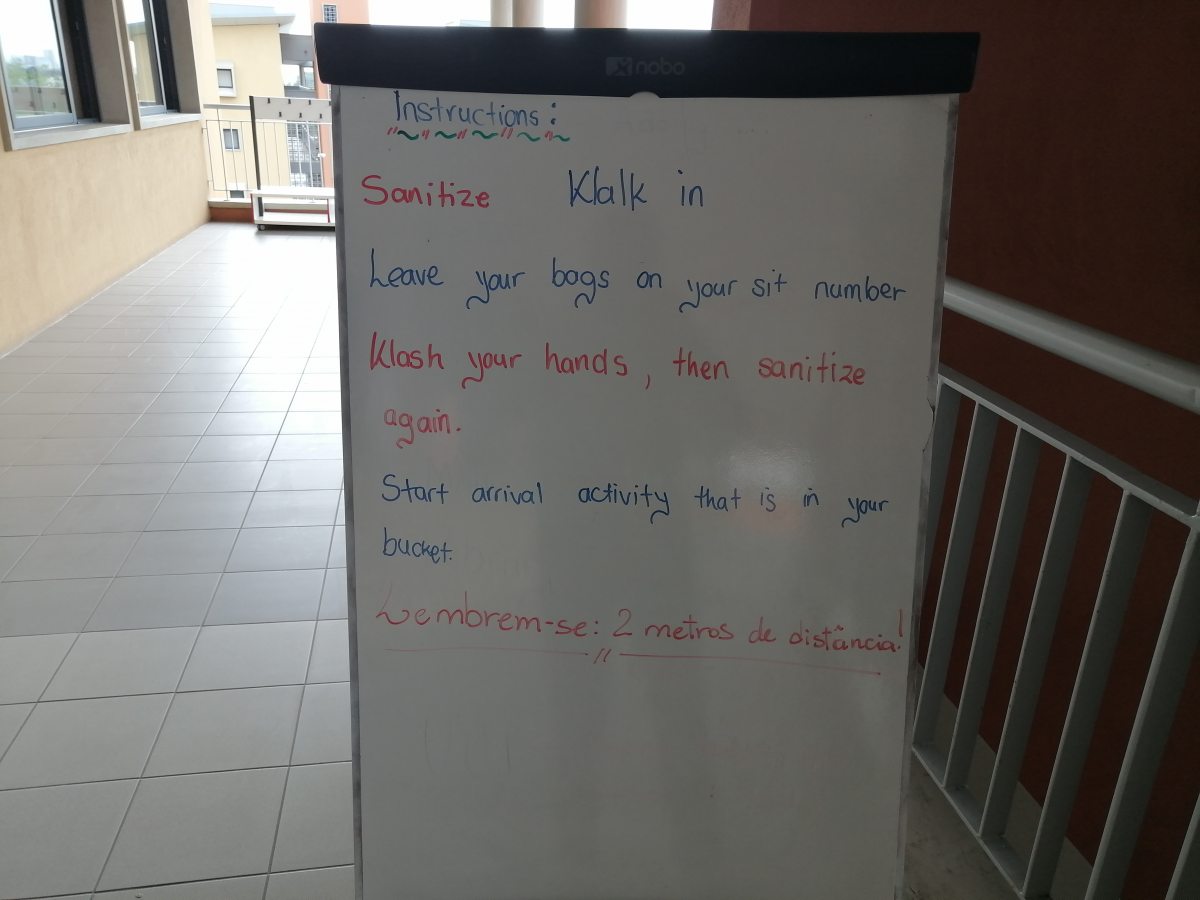 nobo
Instructions:
Sanitize Walk in
Leave your bags on your sit number
Wash your hands, then sanitize
again.
Start arrival activity that is in your
bucket.
Lembrem-se: 2 metros de distância!